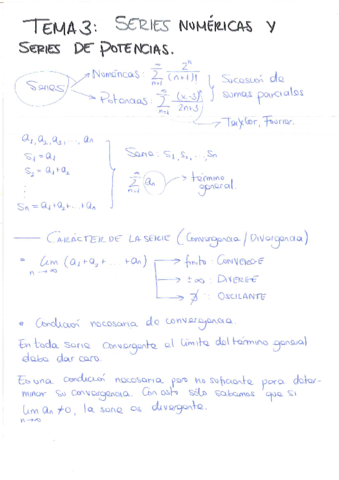 TEMA 3: SERIES NUMÉRICAS Y
SERIES DE POTENCIAS.
Series
Numéricas: ∑_{n=1}^{∞} 2^n/(n+1)!
Potencias: ∑_{n=1}^{∞} (x-3)^n/(2n+3)
Sucesión de
sumas parciales
Taylor, Fourier.
a₁, a₂, a₃, ..., an
S₁ = a₁
S₂ = a₁+a₂
Sn = a₁+a₂+...+an
Serie: S₁, S₂, ..., Sn
∑_{n=1}^{∞} an → término
general.
CARÁCTER DE LA SERIE (Convergencia / Divergencia)
• lim_{n→∞} (a₁+a₂+ ... +an)
→ finito: CONVERGE
→ ±∞: DIVERGE
→ ∄: OSCILANTE
• Condición necesaria de convergencia.
En toda serie convergente el límite del término general
debe dar cero.
Es una condición necesaria pero no suficiente para deter-
minar su convergencia. Con esto sólo sabemos que si
lim_{n→∞} an ≠ 0, la serie es divergente.